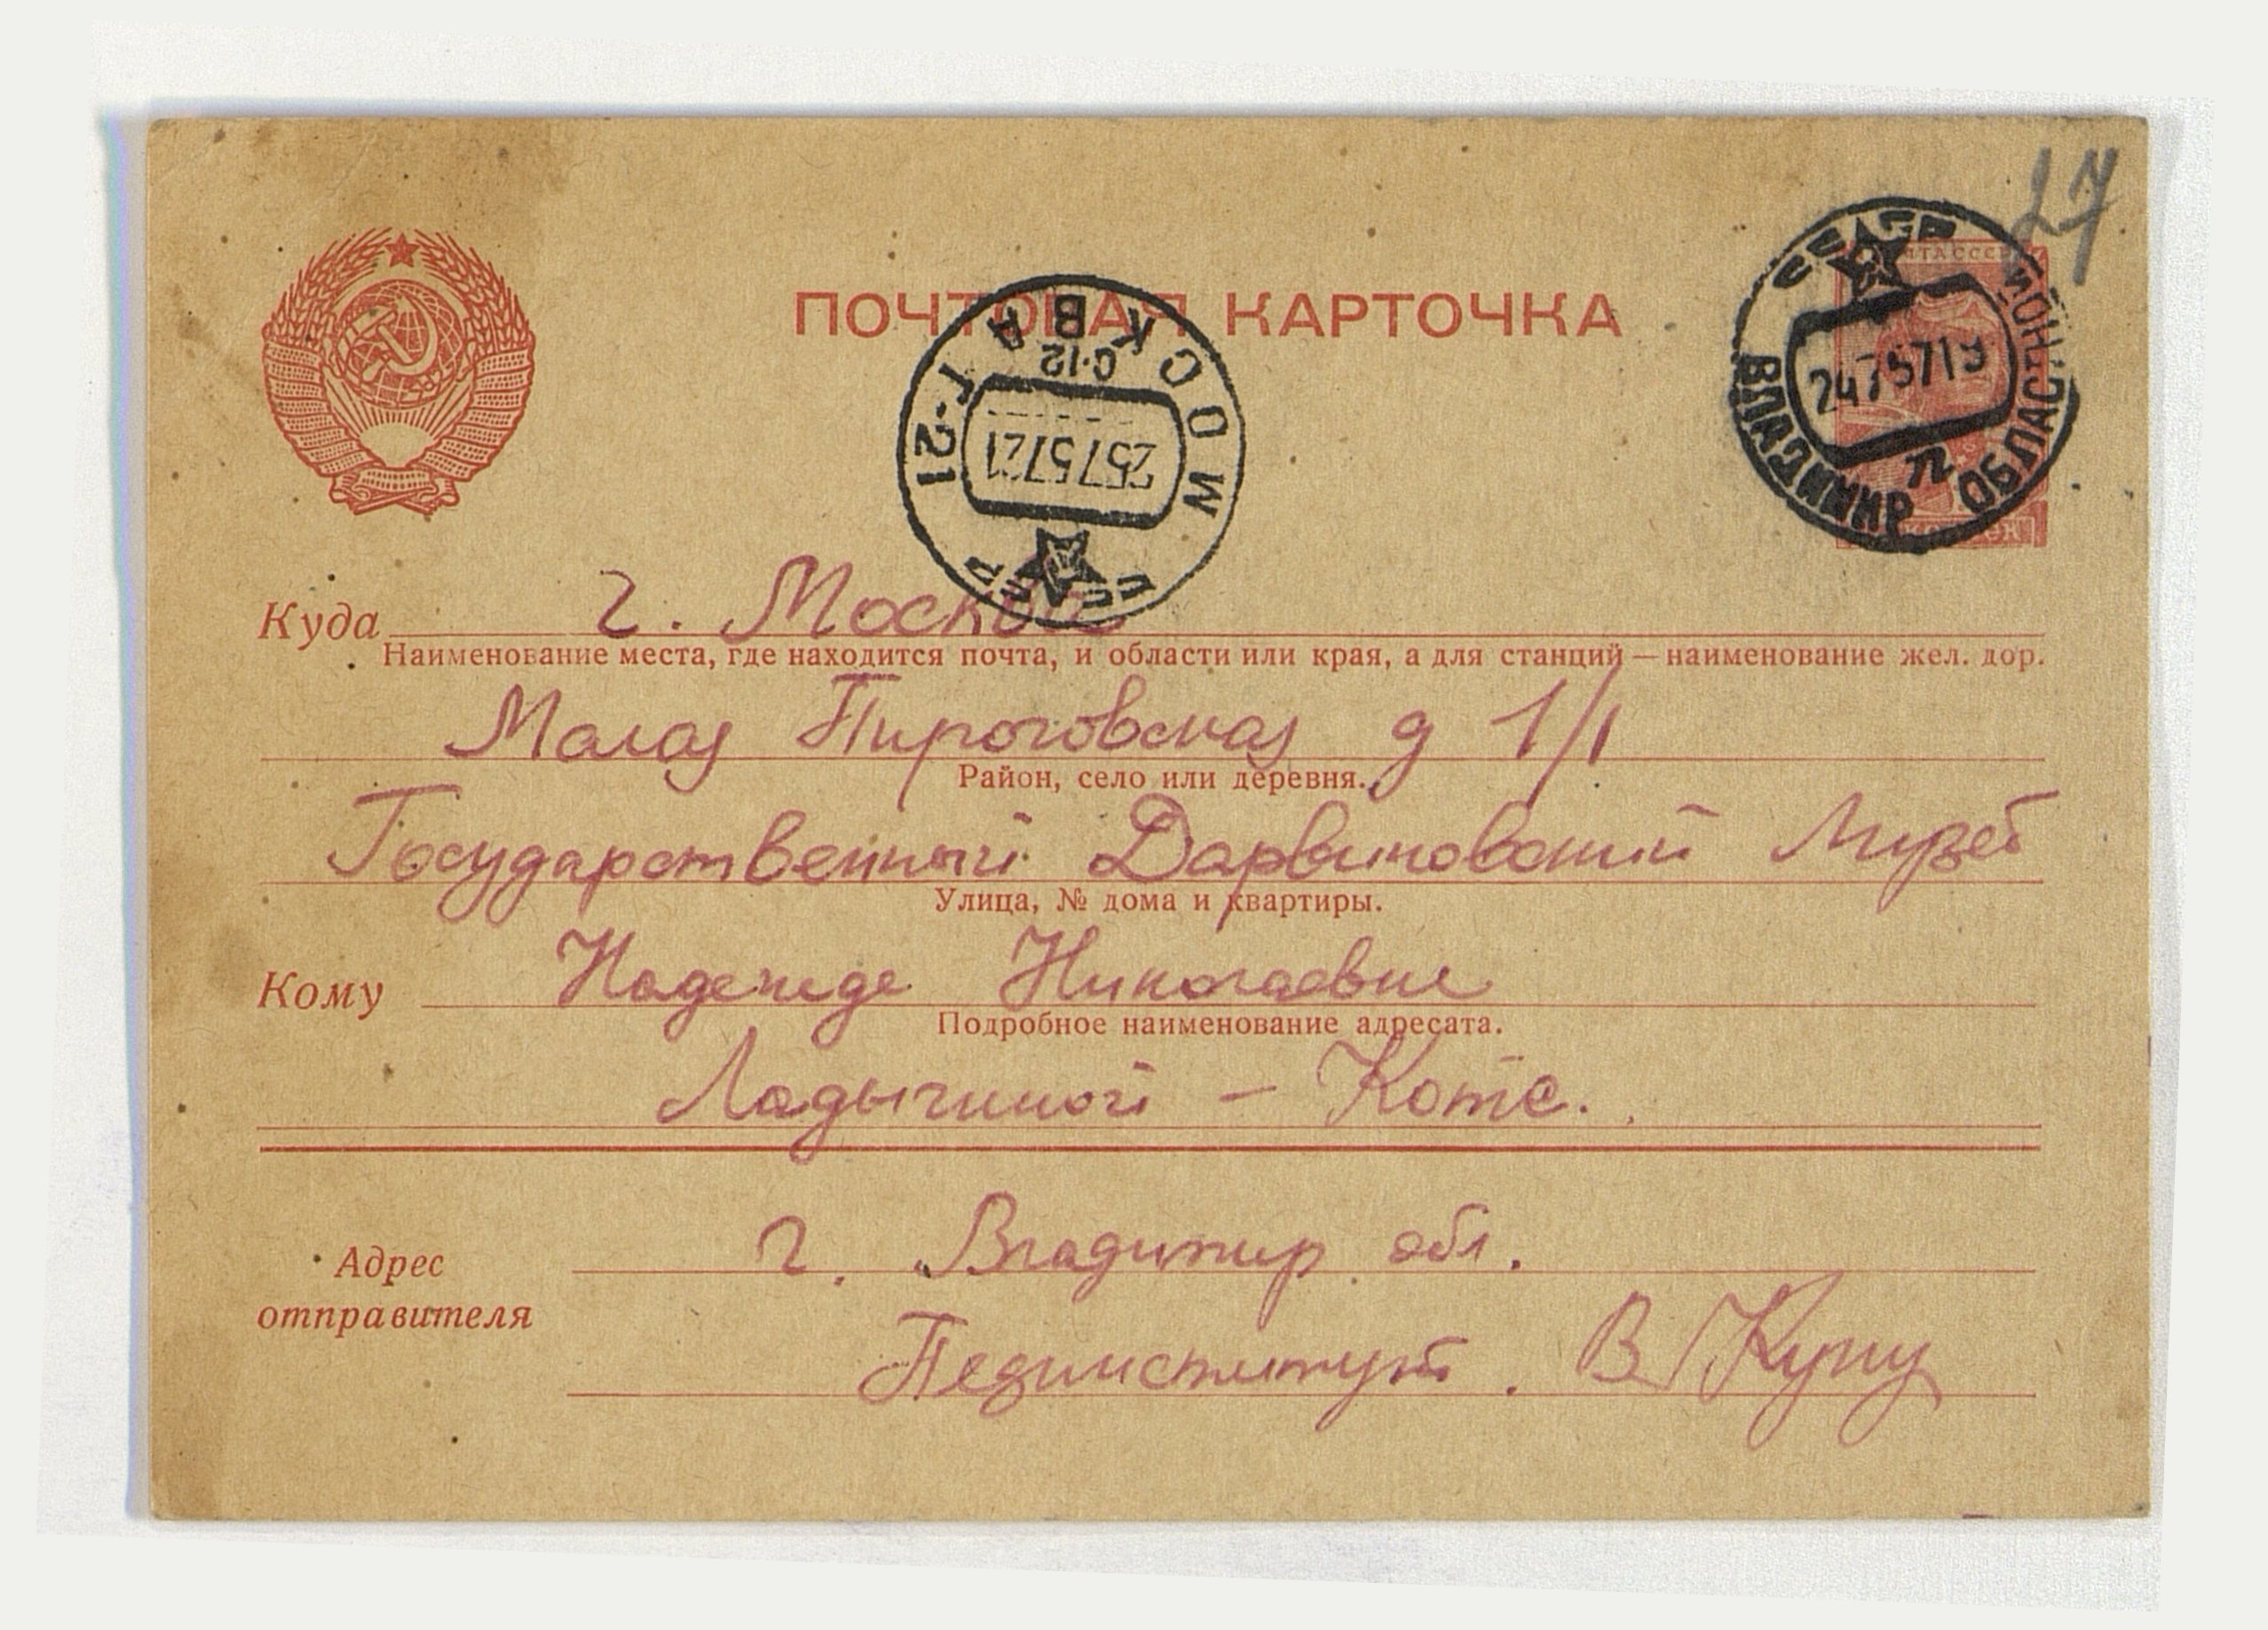 27
ПОЧТОВАЯ КАРТОЧКА
СССР
МОСКВА Г-21
О-12
2575721
СССР
24775719
ВЛАДИМИР ОБЛАСТНОЙ
Куда г. Москва
Наименование места, где находится почта, и области или края, а для станций — наименование жел. дор.
Малая Пироговская д 1/1
Район, село или деревня.
Государственный Дарвиновский Музей
Улица, № дома и квартиры.
Кому Надежде Николаевне
Подробное наименование адресата.
Ладыгиной - Котс.
Адрес отправителя
г. Владимир обл.
Пединститут. В Куну